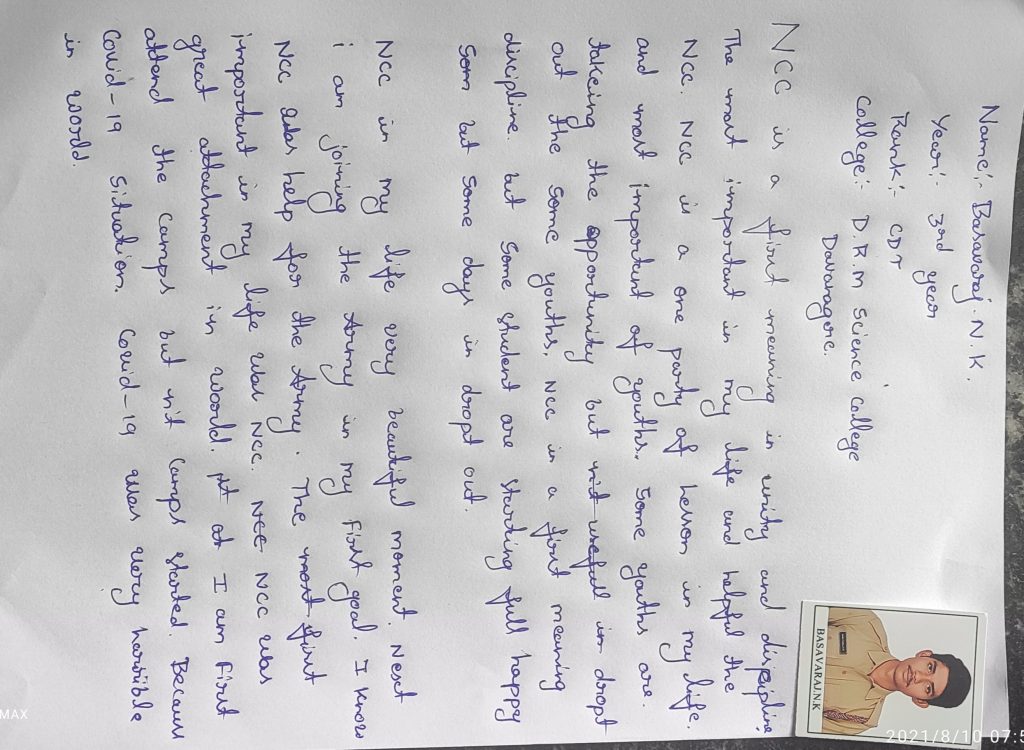 Name:- Basavaraj. N. K.
Year:- 3rd year
Rank:- CDT
College:- D.R.M Science College
Davanagere.
NCC is a first meaning in unity and discipline
The most important in my life and helpful the
NCC. NCC is a one party of Lesson in my life.
and most important of youths. Some youths are.
takeing the opportunity but usefull in dropt
out the some youths. NCC in a first meaning
discipline. but some student are starting full happy
Som but some days in dropt out.
NCC in my life very beautiful moment. Next
i am joining the Army in my first goal. I know
NCC was help for the Army. The most first
important in my life was NCC. NCC NCC was
great attachment in woorld. at I am first
attend the camps but camps started. Because
Covid-19 situation. Covid-19 was very harriible
in woorld.
BASAVARAJ.N.K
2021/8/10 07:5
MAX